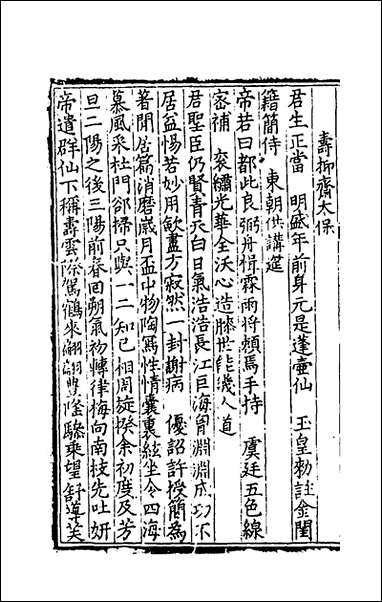 壽抑齋太保
君生正當　明盛年前身元是蓬壺仙　玉皇勅註金閨
籍簡侍　東朝供講筵
帝若曰都此良弼舟楫霖雨將頼焉手持　虞廷五色線
宻補　衮繡光華全沃心造膝世能幾人直
君聖臣仍賢青天白日氣浩浩長江巨海胷淵淵成功不
居益惕若妙用歛盡方寂然一封謝病　優詔許授簡為
著閒居篇消磨歳月盃中物陶寫性情囊裏絃坐令四海
慕風采杜門卻掃只與一二知已相周旋揆余初度及芳
旦二陽之後三陽前春回朔氣初轉律梅向南枝先吐妍
帝遣群仙下稱壽雲際駕鶴來翩翩豐隆驂乘望舒導芙